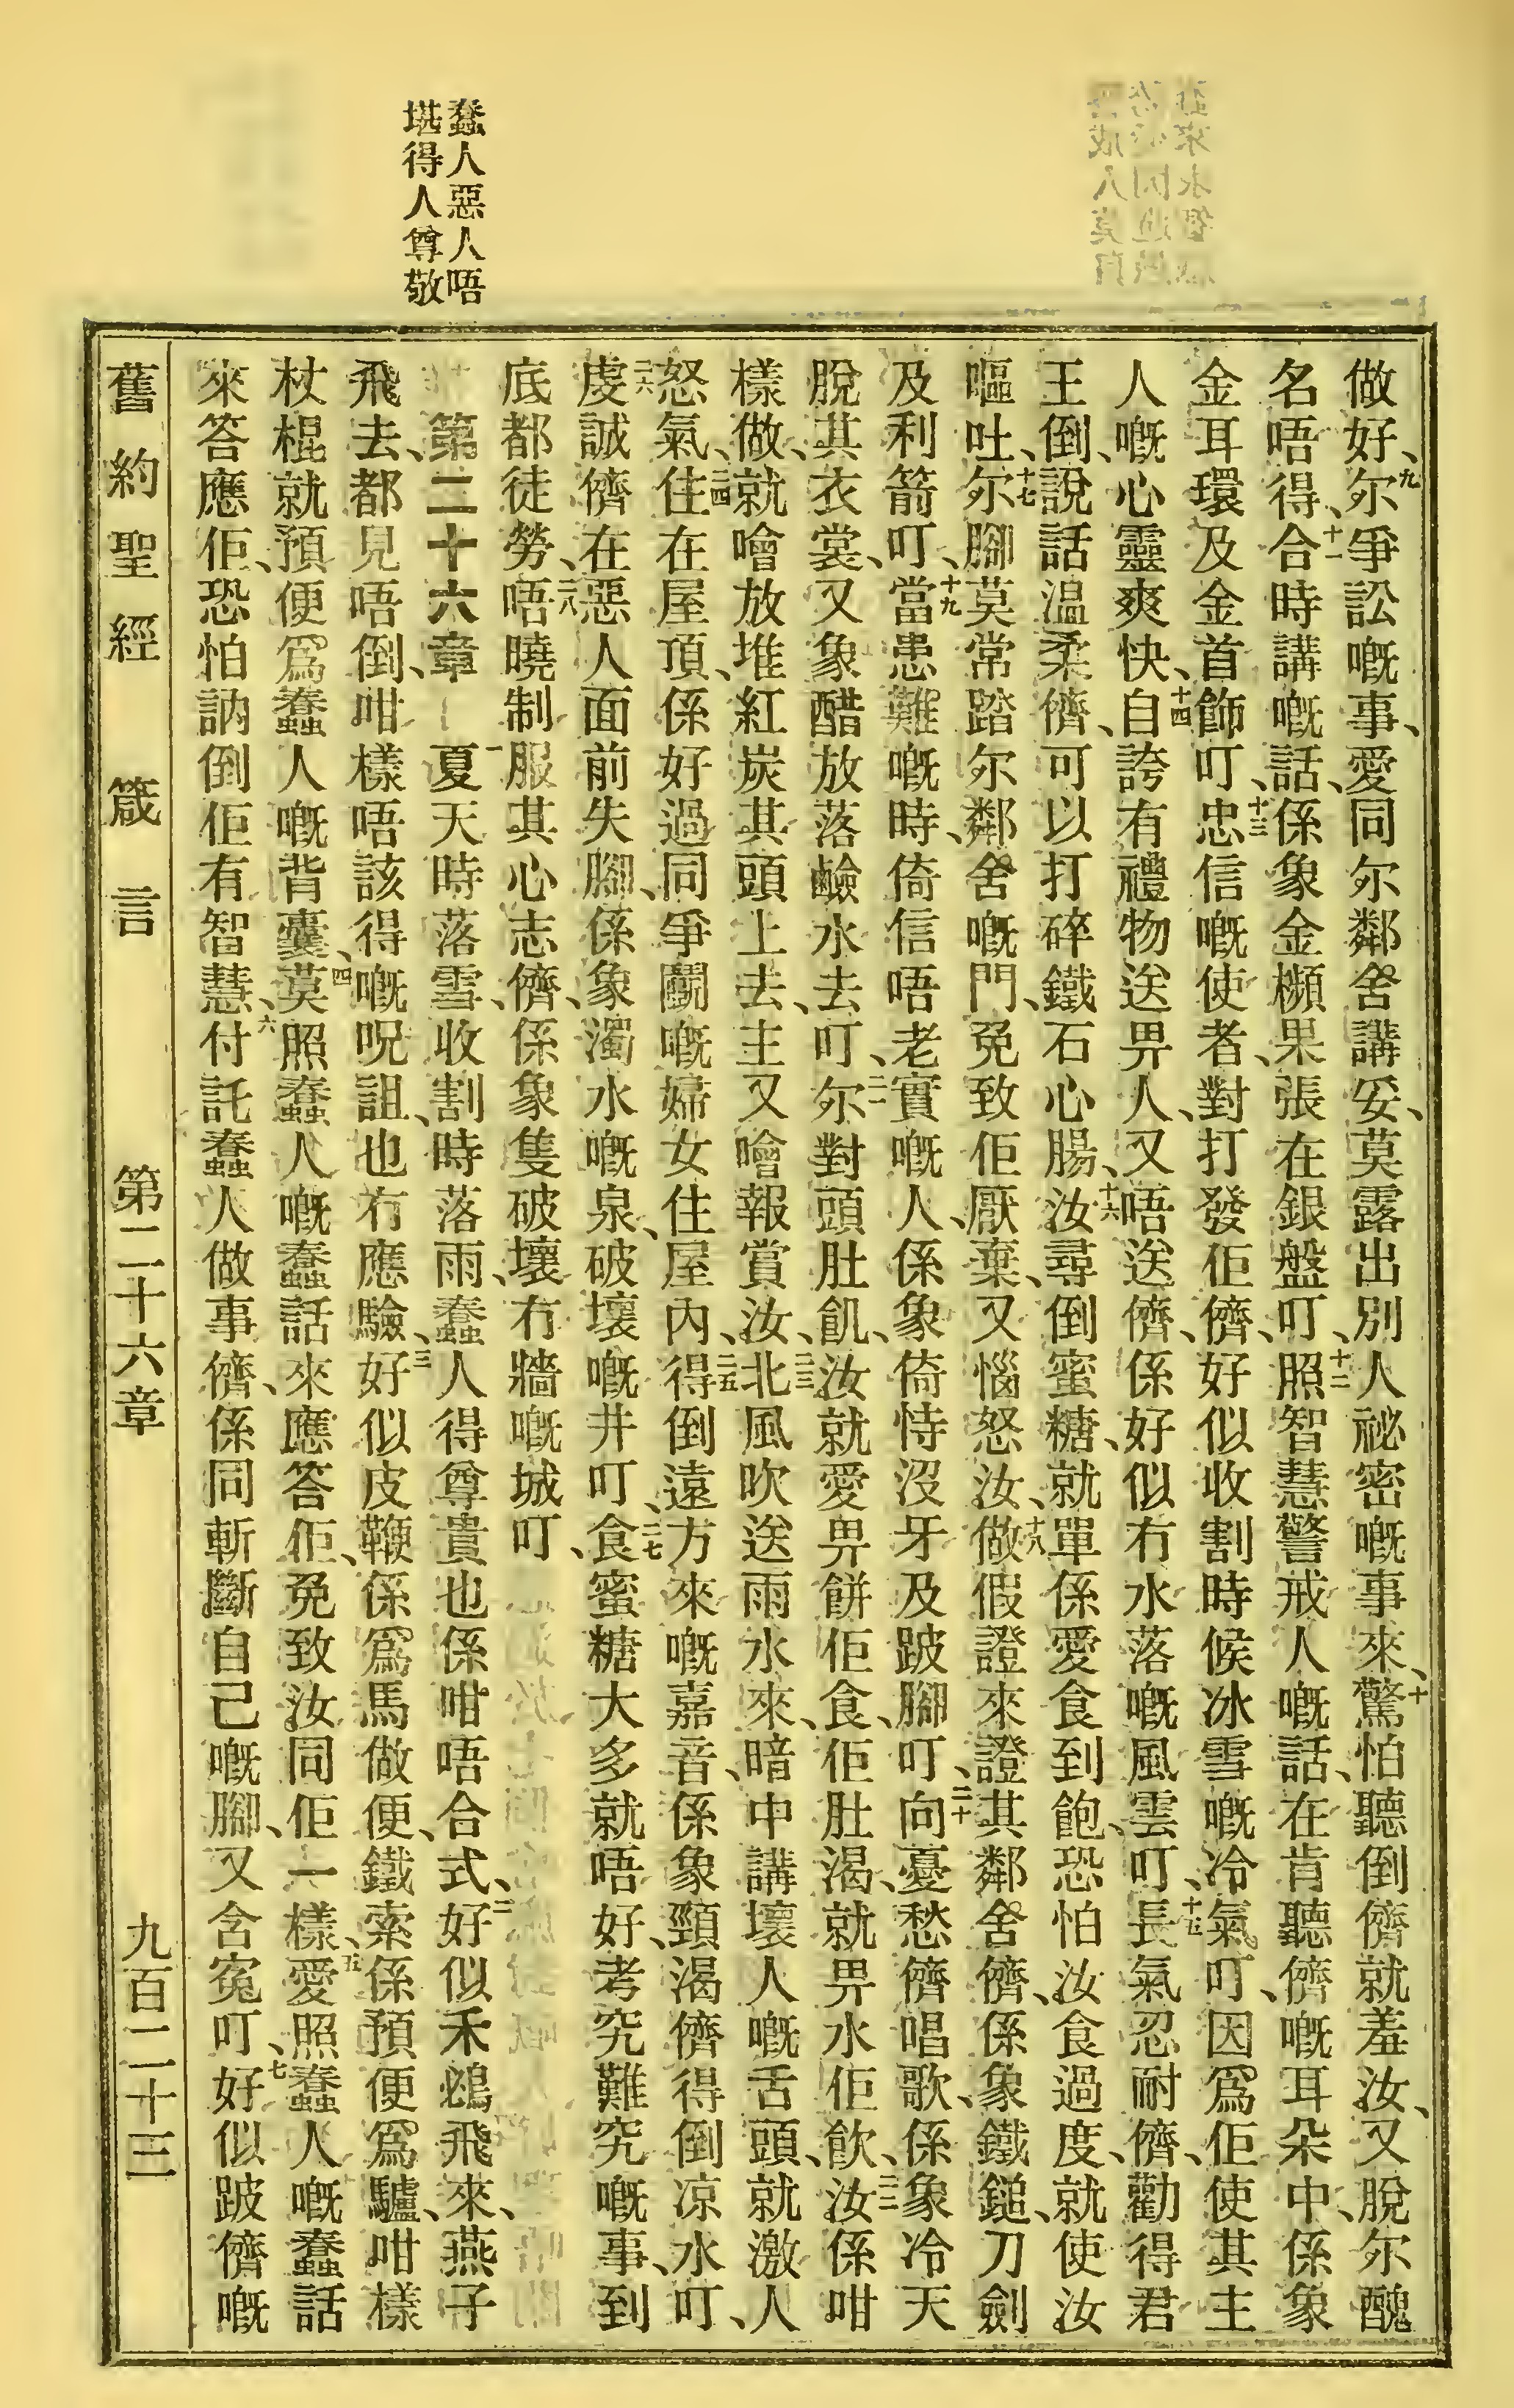 蠢人惡人唔
堪得人尊敬
做好、九尔爭訟嘅事、愛同尔鄰舍講妥、莫露出別人祕密嘅事來、十驚怕聽倒儕就羞汝、又脫尔醜
名唔得、十一合時講嘅話、係象金櫇果張在銀盤叮、十二照智慧警戒人嘅話、在肯聽儕嘅耳朵中、係象
金耳環及金首飾叮、十三忠信嘅使者、對打發佢儕、好似收割時候冰雪嘅冷氣叮、因爲佢使其主
人嘅心靈爽快、十四自誇有禮物送畀人、又唔送儕、係好似冇水落嘅風雲叮、十五長氣忍耐儕、勸得君
王倒、說話温柔儕、可以打碎鐵石心腸、十六汝尋倒蜜糖、就單係愛食到飽、恐怕汝食過度、就使汝
嘔吐、十七尔腳莫常踏尔鄰舍嘅門、免致佢厭棄、又惱怒汝、十八做假證來證其鄰舍儕、係象鐵鎚刀劍
及利箭叮、十九當患難嘅時、倚信唔老實嘅人、係象倚恃沒牙及跛腳叮、二十向憂愁儕唱歌、係象冷天
脫其衣裳、又象醋放落鹼水去叮、二一尔對頭肚飢、汝就愛畀餅佢食、佢肚渴、就畀水佢飲、二二汝係咁
樣做、就噲放堆紅炭其頭上去、主又噲報賞汝、二三北風吹送雨水來、暗中講壞人嘅舌頭、就激人
怒氣、二四住在屋頂、係好過同爭鬭嘅婦女住屋內、二五得倒遠方來嘅嘉音、係象頸渴儕得倒凉水叮、
二六虔誠儕在惡人面前失腳、係象濁水嘅泉、破壞嘅井叮、二七食蜜糖大多就唔好、考究難究嘅事、到
底都徒勞、二八唔曉制服其心志儕、係象隻破壞冇牆嘅城叮、
第二十六章　一夏天時落雪、收割時落雨、蠢人得尊貴也係咁唔合式、二好似禾鵶飛來、燕子
飛去、都見唔倒、咁樣唔該得嘅呪詛、也冇應驗、三好似皮鞭係爲馬做便、鐵索係預便爲驢、咁樣
杖棍就預便爲蠢人嘅背囊、四莫照蠢人嘅蠢話來應答佢、免致汝同佢一樣、五愛照蠢人嘅蠢話
來答應佢、恐怕訥倒佢有智慧、六付託蠢人做事儕、係同斬斷自己嘅腳、又含寃叮、七好似跛儕嘅
舊約聖經　箴言　第二十六章　九百二十三